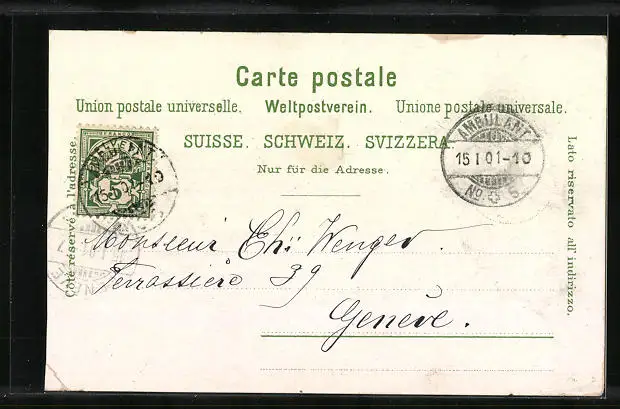 Carte postale
Union postale universelle. Weltpostverein. Unione postale universale.
SUISSE. SCHWEIZ. SVIZZERA.
Nur für die Adresse.
Côté réservé à l'adresse.
Lato riservato all' indirizzo.
5
AMBULANT
15 I 01-10
No 5
Monsieur Ch: Wenger
Terrassière 39
Genève.